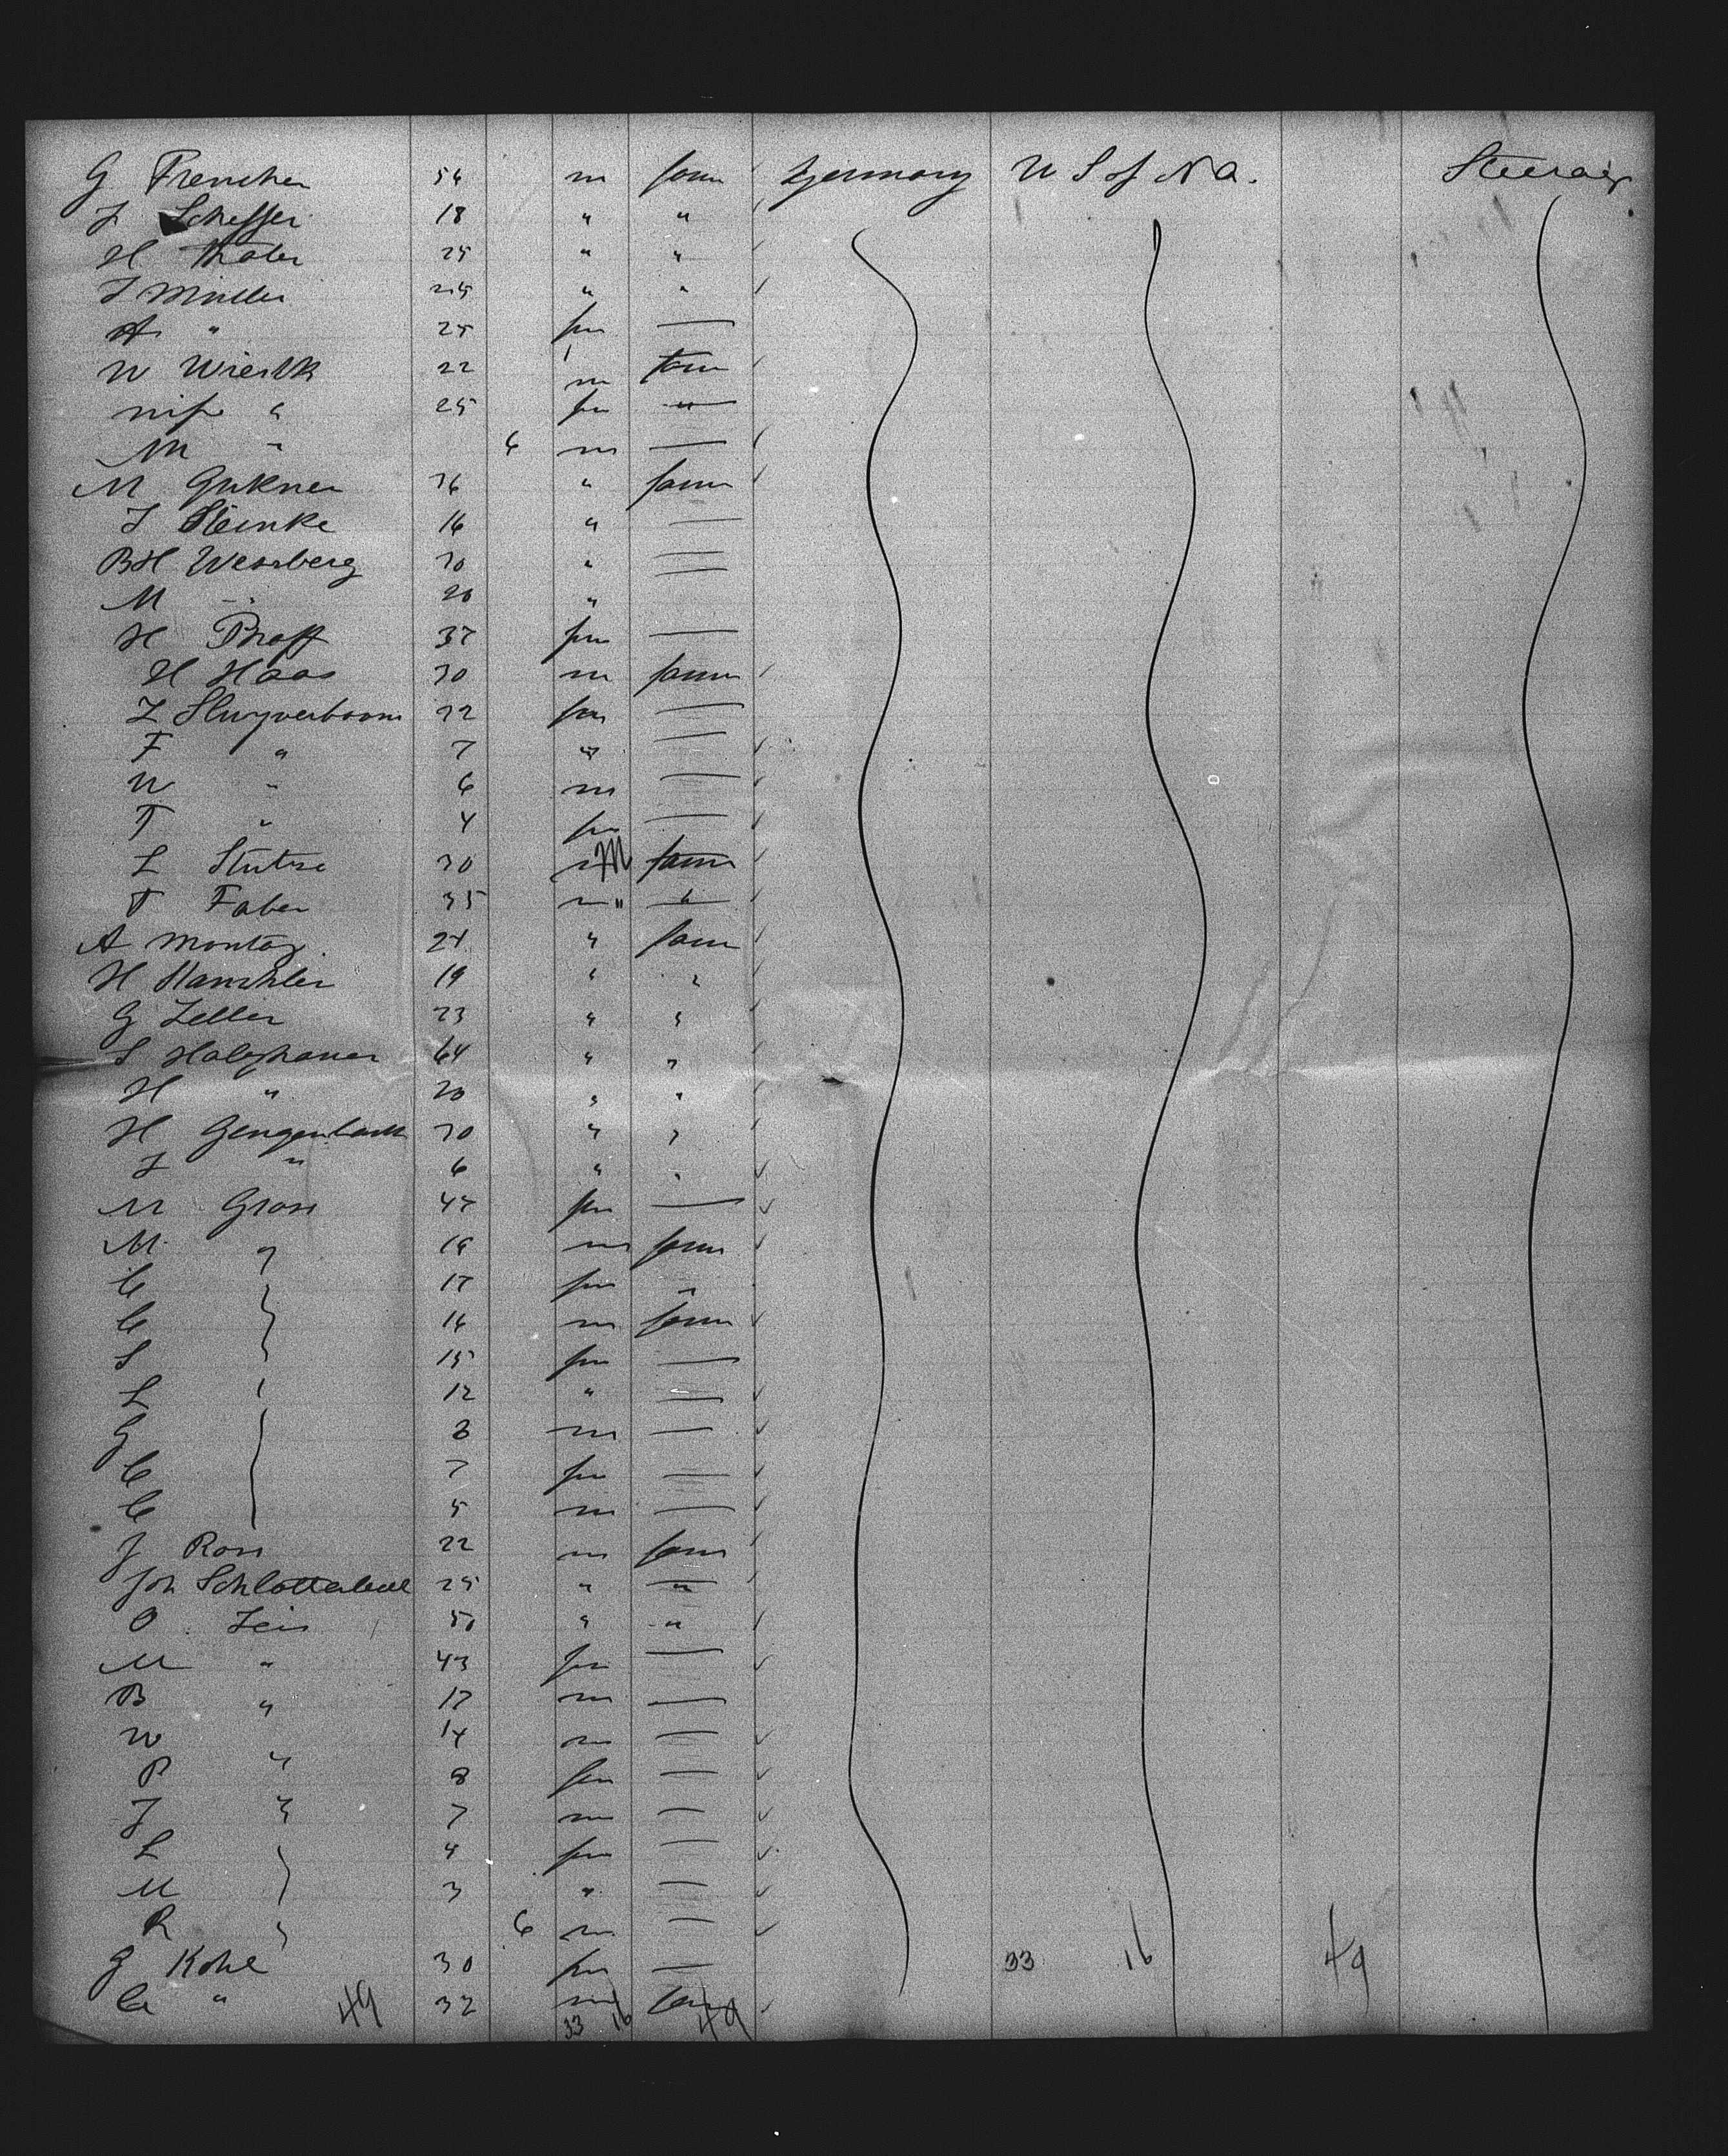 G 54 m farm Germany U S of N a. Steerage
J Scheffer 18 " "
H Thaler 25 " "
J Müller 25 " "
A " 25 fm —
W 22 m farm
wife " 25 fm "
M " 6 m —
M 36 " farm
J Steinke 16 " —
BH Weinberg 30 " —
M " 20 "
H Pfaff 37 fm —
H Haas 30 m farm
Z Sluyverboom 32 fm —
F " 7 " —
W " 6 m —
T " 4 fm —
L Stutze 30 M farm
T Faber 35 m " "
A Montag 24 " farm
H 19 " "
G Zeller 23 " "
S Holzhauer 64 " "
H " 20 " "
H Gengenbach 30 " "
J " 6 " "
M Gross 47 fm —
M " 19 m farm
C 17 fm "
C 16 m farm
S 15 fm —
L 12 " —
G 8 m —
C 7 fm —
C 5 m —
J Ross 22 m farm
Joh Schlotterbeck 25 " "
O Zeis 50 " "
M " 43 fm —
B " 17 m —
W 14 m —
P " 8 fm —
J " 7 m —
L 4 fm —
M 3 " —
R 6 m —
G Kohl 30 fm — 33 16 49
Ca " 49 32 m farm
33 16 49